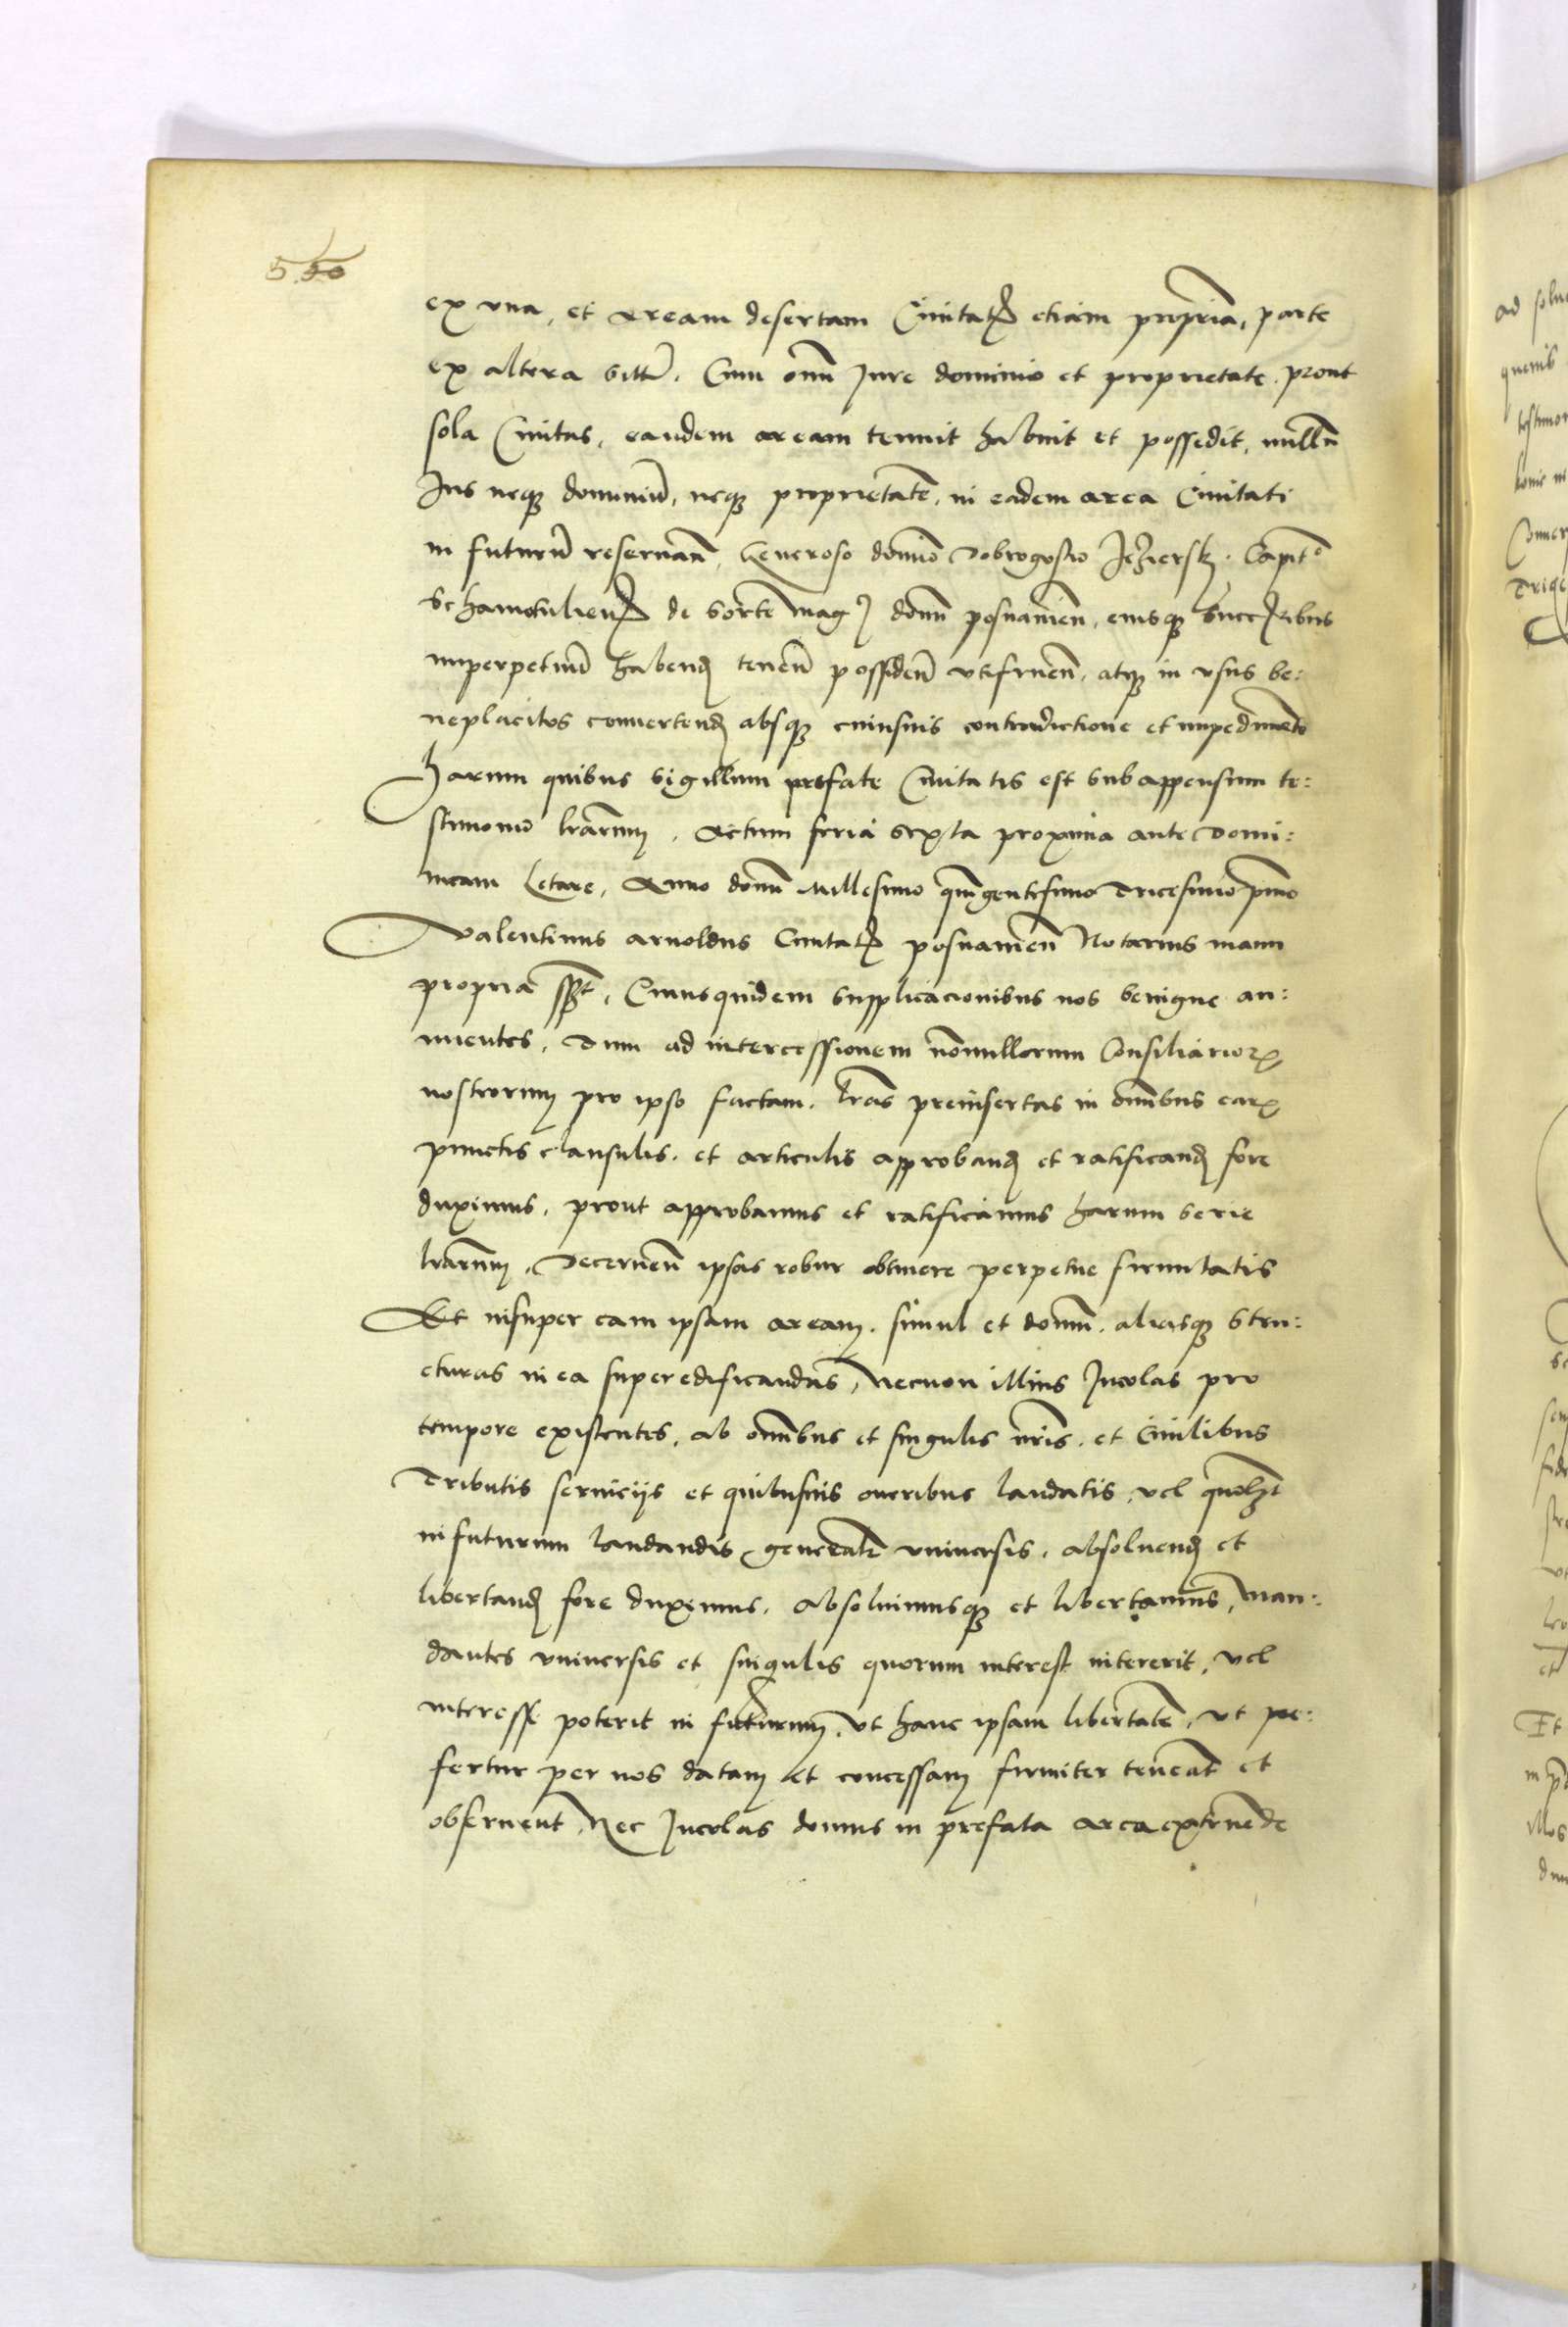 ex vna, et aream desertam Ciuitat͛ etiam propria͛, parte
ex altera sitt͛. Cum om̄i Jure dominio et proprietate, prout
sola Ciuitas, eandem aream tenuit habuit et possedit, nullū
Jus neqꝫ dominiū, neqꝫ proprietatē, in eadem area Ciuitati
in futurū reseruan̄, Generoso domīo Dobrogostio Jeziersk͛ Capit͛
Schamotulien͛ de sorte Mag͛ domī posnanien̄, eiusqꝫ succ͛ribus
imperpetuū habend͛ tenen̄ possiden̄ vtifruen̄, atqꝫ in vsus be:
neplacitos conuertend͛ absqꝫ cuiusuis contradictione et impedimēto
Harum quibus sigillum prefate Ciuitatis est subappensum te:
stimonio lrārum. Actum feria sexta proxima ante Domi:
nicam Letare, Anno domī Millesimo quīgentesimo Tricesimo pīmo
Valentinus arnoldus Ciuitat͛ posnanien̄ Notarius manu
propria s͛st, Cuiusquidem supplicacionibus nos benigne an:
nuentes, Dum ad intercessionem nōnullorum Consiliarioꝝ
nostrorum pro ipso factam, lrās preinsertas in om̄ibus eaꝝ
punctis clausulis, et articulis approband͛ et ratificand͛ fore
duximus, prout approbamus et ratificamus harum serie
lrārum, Decernen̄ ipsas robur obtinere perpetue firmitatis
Et insuper eam ipsam aream, simul et domū, aliasqꝫ stru:
cturas in ea superedificandas, Necnon illius Jncolas pro
tempore existentes, ab om̄ibus et singulis nrīs, et Ciuilibus
Tributis seruicijs et quibusuis oneribus laudatis, vel quolꝫt
in futurum laudandis generalr̄ vniuersis, absoluend͛ et
libertand͛ fore duximus, absoluimusqꝫ et libertamus, Man:
dantes vniuersis et singulis quorum interest intererit, vel
interesse poterit in futurum, vt hanc ipsam libertatē, vt pre:
fertur per nos datam et concessam firmiter teneāt et
obseruent, Nec Jncolas domus in prefata area extruende